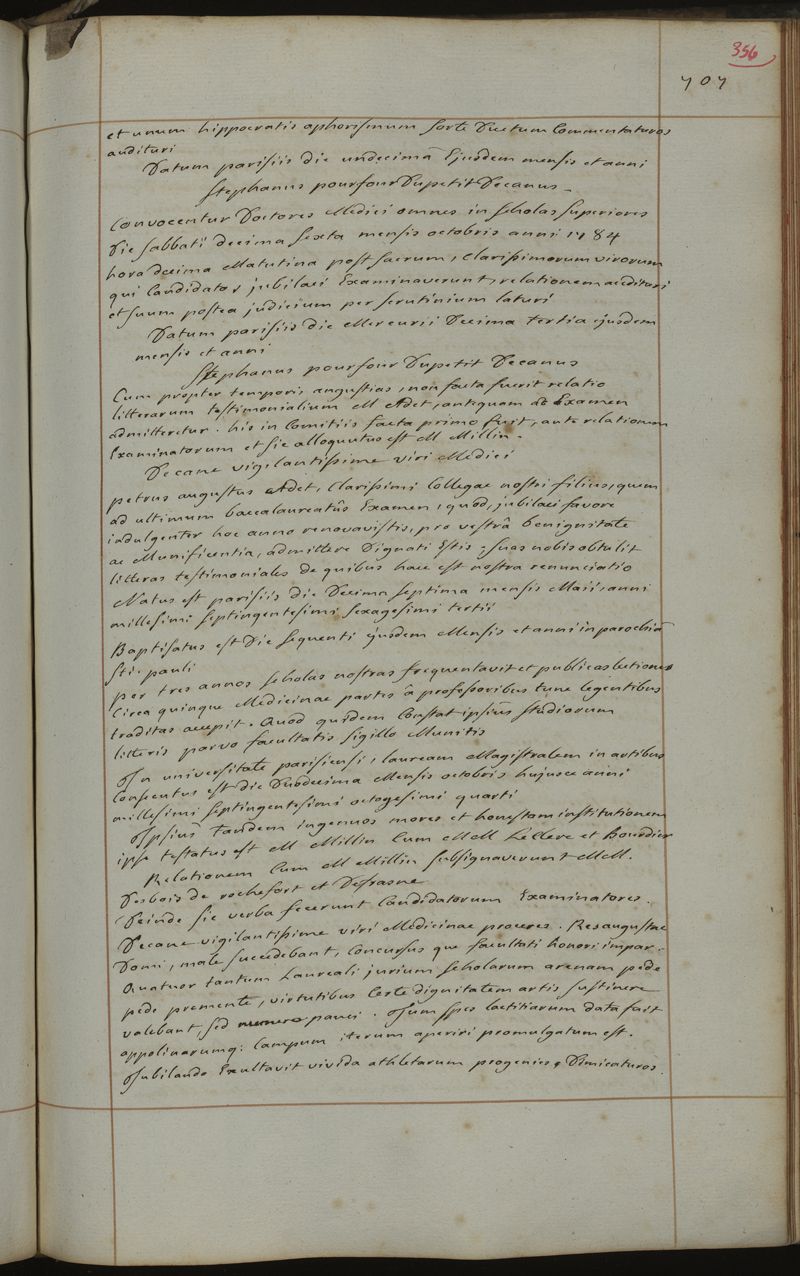 356
707
et unum hippocratis aphorismum sorte Ductum Commentaturos
audituri
Datum parisiis die undecimâ Ejusdem mensis et anni
Stephanus pourfour Dupetit Decanus -
Convocentur Doctores Medici omnes in scholas superiores
Die sabbati decima sexta mensis octobris anni 1784
hora decima Matutina post sacrum, Clarissimorum virorum
qui Candidatos jubilaei Examinaverunt, relationem audituri
et suum postea judicium per scrutinium laturi
Datum parisiis die Mercurii Decima tertia ejusdem
mensis et anni
Stephanus pourfour Dupetit Decanus
Cum propter temporis angustias, non facta fuerit relatio
litterarum testimonialium M Adet, antequam ad Examen
admitteretur. his in Comitiis facta primo fuit, ante relationem
Examinatorum et sic alloquutus est M Millin.
Decane vigilantissime viri Medici
petrus augustus Adet, Clarissimi Collegae nostri filius, quem
ad ultimum baccalaureatûs Examen, quod, jubilaei favore
indulgenter hoc anno renovavistis, pro vestrâ benignitate
ac Munificentia, admittere Dignati Estis; suas nobis obtulit
litteras testimoniales de quibus haec est nostra renunciatio
Natus est parisiis die Decima septima mensis Maii, anni
millesimi septingentesimi sexagesimi tertii
Baptisatus est Die sequenti ejusdem Mensis et anni in parochiâ
Sti. pauli
per tres annos scholas nostras frequentavit et publicas lectiones
Circa quinque Medicinae partes à professoribus tunc legentibus
traditas accepit. Quod quidem Constat ipsius studiorum
litteris parvo facultatis sigillo Munitis
In universitate parisiensi, lauream Magistralem in artibus
Consecutus est die Duodecima Mensis octobris hujusce anni
millesimi septingentesimi octogesimi quarti
Ipsius tandem ingenuos mores et honestam institutionem
ipse testatus est M Millin Cum MM Leclerc et Bourdier
Relationem Cum M Millin subsignaverunt MM.
Desbois de rochefort et Defrasne
Deinde sic verba fecerunt Candidatorum Examinatores.
Decane vigilantissime viri Medicinae proceres. Res angustae
Domi, male succedebant, Concursus que facultati honori impar.
Quatuor tantum Laureali jurium scholarum arenam pede
pede premente, virtutibus Certe dignitatem artis sustinere
valebant, sed numero pauci. Jum spes laetitiarum data fuit
appolinarumq: Campum iterum aperiri promulgatum est.
Jubilando Exultavit vivida athletarum progenies, Dimicaturos